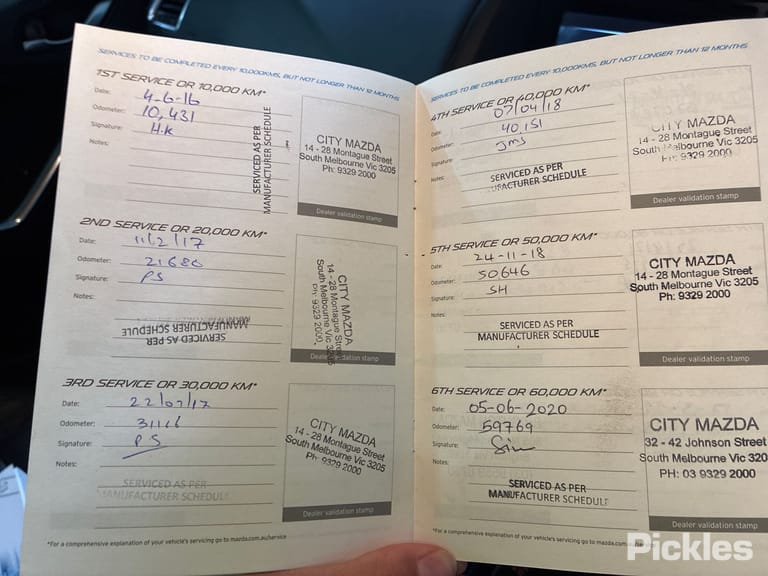 SERVICES TO BE COMPLETED EVERY 10,000KMS, BUT NOT LONGER THAN 12 MONTHS
1ST SERVICE OR 10,000 KM*
Date: 4-6-16
Odometer: 10,431
Signature: H.K
Notes:
SERVICED AS PER
MANUFACTURER SCHEDULE
CITY MAZDA
14 - 28 Montague Street
South Melbourne Vic 3205
Ph: 9329 2000
Dealer validation stamp
2ND SERVICE OR 20,000 KM*
Date: 11/2/17
Odometer: 21680
Signature: PS
Notes:
SERVICED AS PER
MANUFACTURER SCHEDULE
CITY MAZDA
14 - 28 Montague Street
South Melbourne Vic 3205
Ph: 9329 2000
Dealer validation stamp
3RD SERVICE OR 30,000 KM*
Date: 22/07/17
Odometer: 31116
Signature: PS
Notes:
SERVICED AS PER
MANUFACTURER SCHEDULE
CITY MAZDA
14 - 28 Montague Street
South Melbourne Vic 3205
Ph: 9329 2000
Dealer validation stamp
*For a comprehensive explanation of your vehicle's servicing go to mazda.com.au/service
SERVICES TO BE COMPLETED EVERY 10,000KMS, BUT NOT LONGER THAN 12 MONTHS
4TH SERVICE OR 40,000 KM*
Date: 07/04/18
Odometer: 40,151
Signature: JMS
Notes:
SERVICED AS PER
MANUFACTURER SCHEDULE
CITY MAZDA
14 - 28 Montague Street
South Melbourne Vic 3205
Ph: 9329 2000
Dealer validation stamp
5TH SERVICE OR 50,000 KM*
Date: 24-11-18
Odometer: 50646
Signature: SH
Notes:
SERVICED AS PER
MANUFACTURER SCHEDULE
CITY MAZDA
14 - 28 Montague Street
South Melbourne Vic 3205
Ph: 9329 2000
Dealer validation stamp
6TH SERVICE OR 60,000 KM*
Date: 05-06-2020
Odometer: 59769
Signature:
Notes:
SERVICED AS PER
MANUFACTURER SCHEDULE
CITY MAZDA
32 - 42 Johnson Street
South Melbourne Vic 320
PH: 03 9329 2000
Dealer validation stamp
*For a comprehensive explanation of your vehicle's servicing go to mazda.com.au/service
Pickles